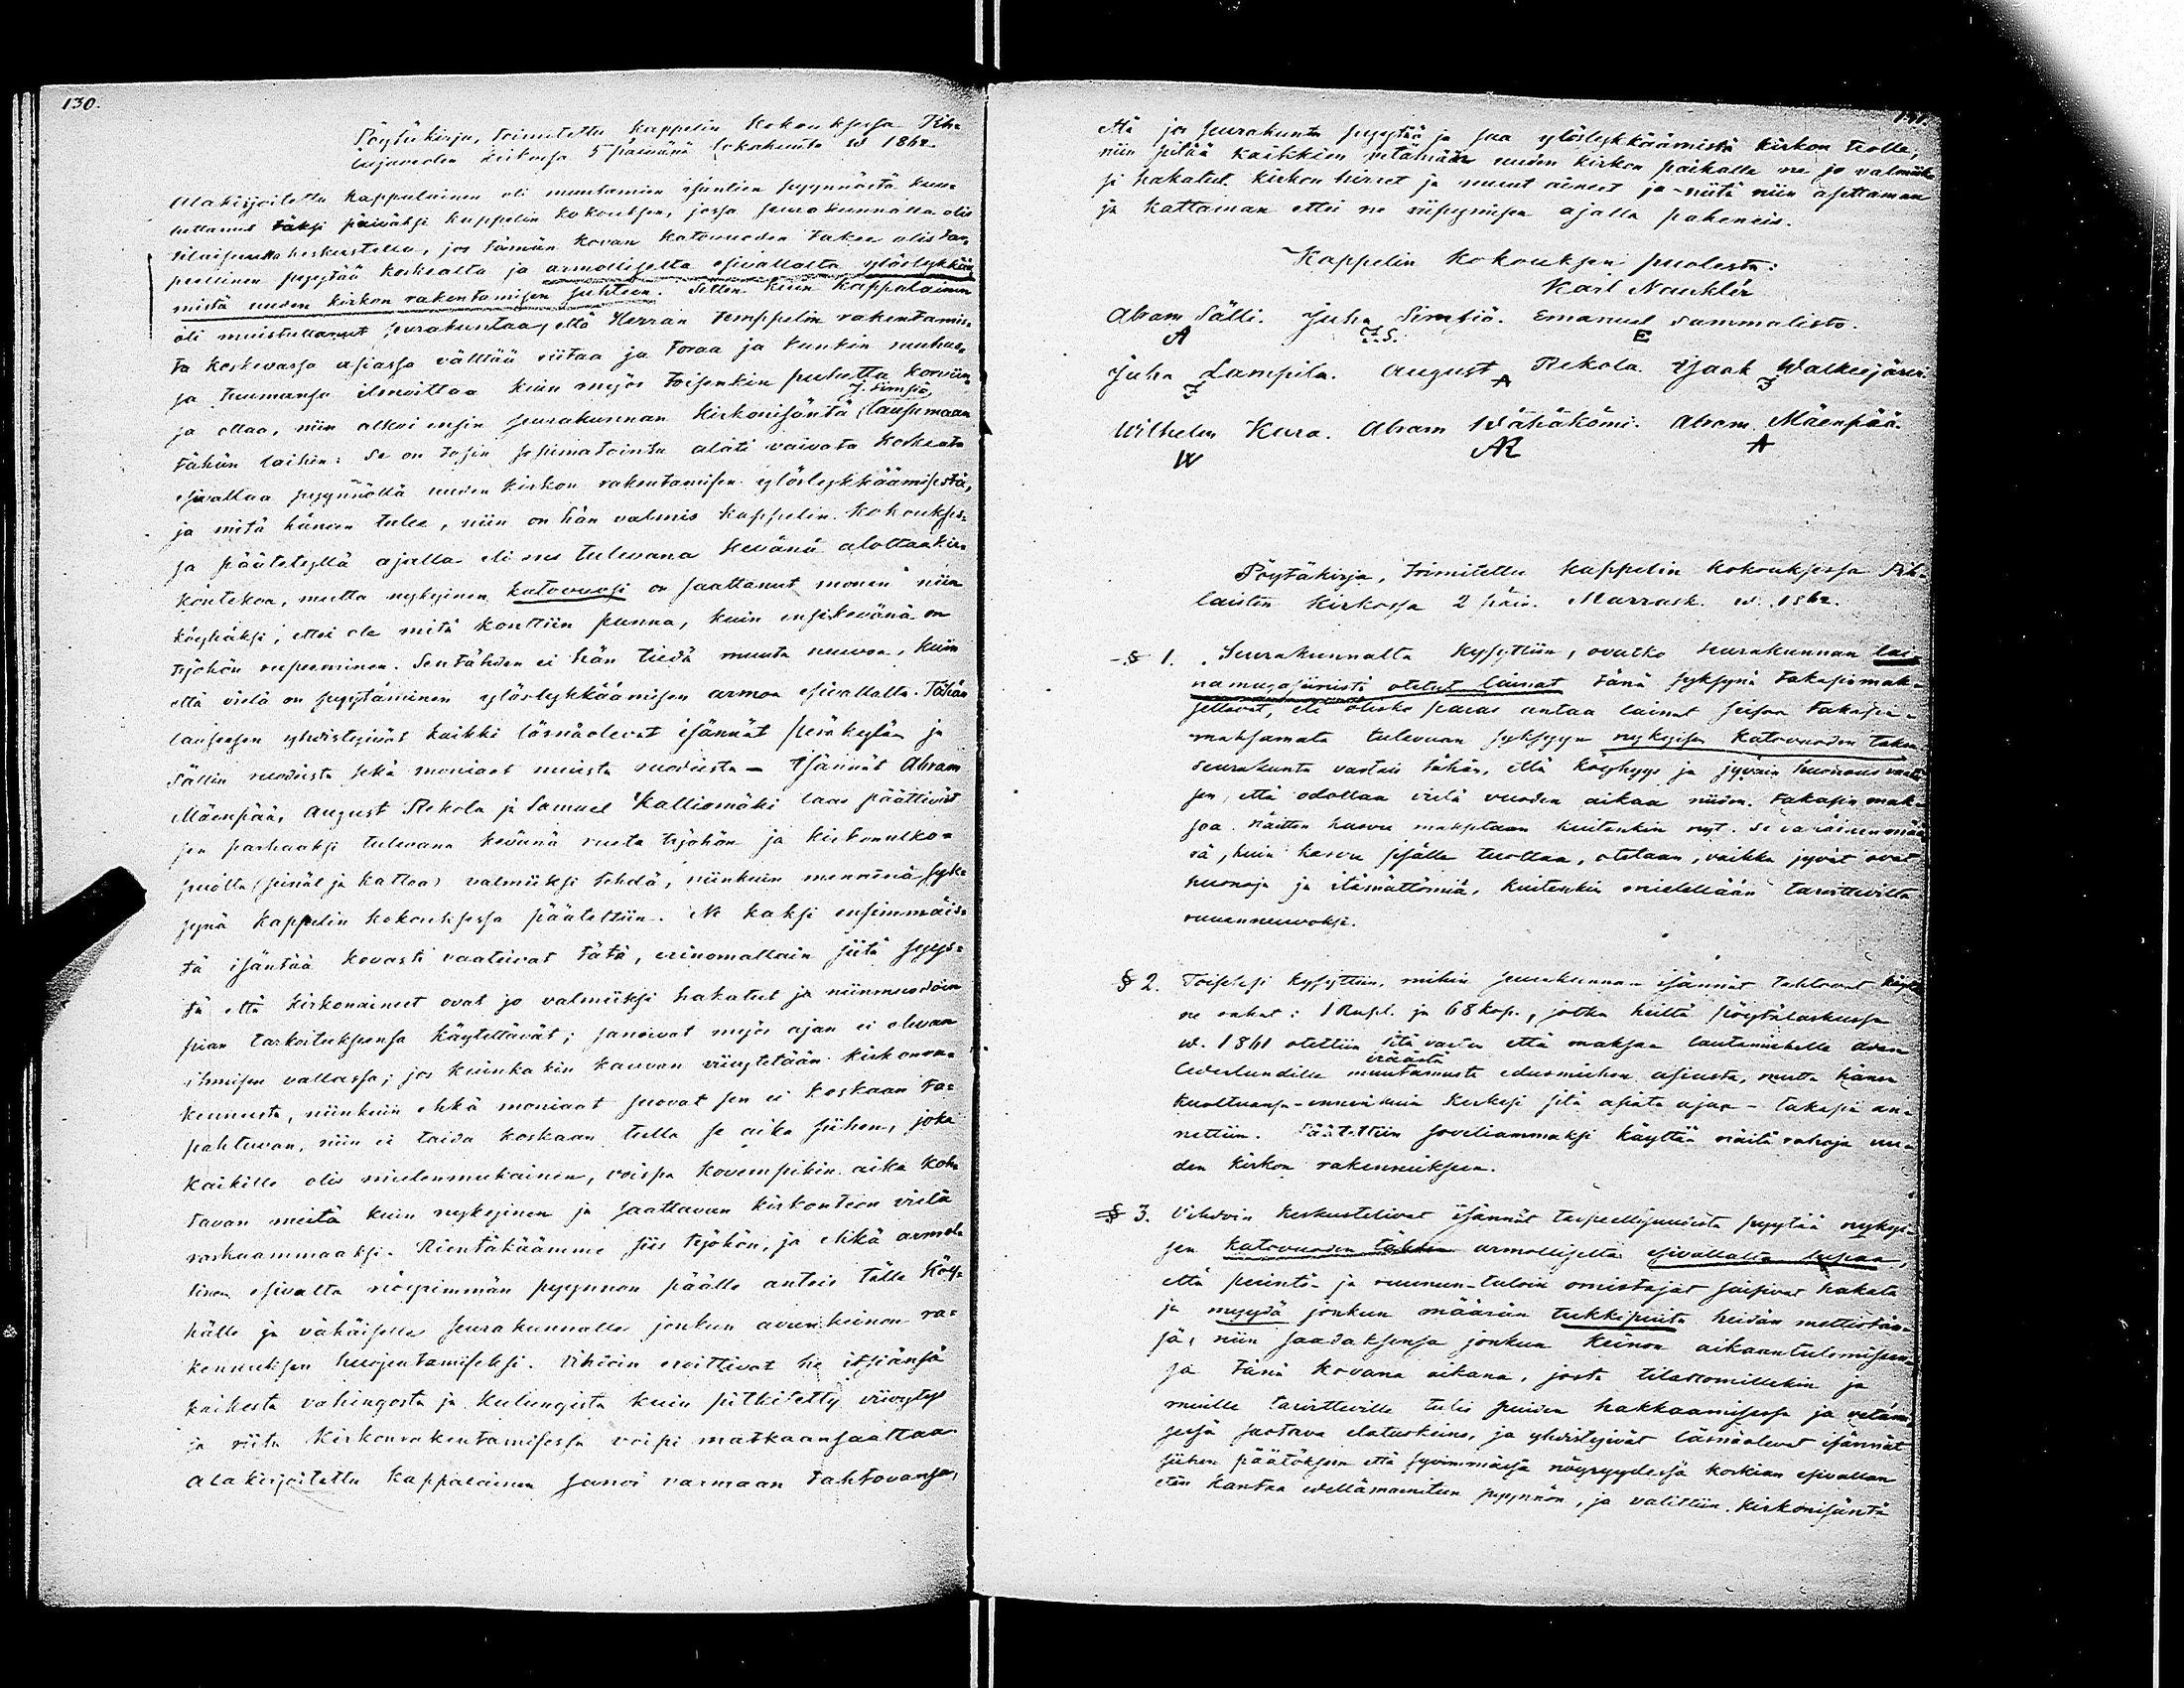 130.
Pöytäkirja, toimitettu kappelin kokouksessa Pih-
lajaveden kirkossa 5 päivänä lokakuuta w 1862.
Alakirjoitettu kappalainen oli muutamien isäntien pyynnöstä kuu-
luttanut täksi päiväksi kappelin kokouksen, jossa seurakunnalla olis
tilaisuutta keskustella, jos tämän kovan katovuoden takia olis tar-
peellinen pyytää korkealta ja armolliselta esivallalta ylöslykkää-
mistä uuden kirkon rakentamisen suhteen. Sitten kuin kappalainen
oli muistuttanut seurakuntaa, että Herran temppelin rakentamis-
ta koskevassa asiassa välttää riitaa ja toraa ja kunkin rauhas-
sa tuumansa ilmoittaa kuin myös toisenkin puhetta korviin-
J. Simsiö
sa ottaa, niin alkoi ensin seurakunnan kirkonisäntä lausumaan
tähän laihin: Se on tosin sopimatointa aláti vaivata korkeata
esivaltaa pyynnöllä uuden kirkon rakentamisen ylöslykkäämisestä,
ja mitä häneen tulee, niin on hän valmis kappelin kokoukses-
sa päätetyllä ajalla eli nes tulevana kevänä alottaa kir-
kontekoa, mutta nykyinen katovuosi on saattanut monen niin
köyhäksi, ettei ole mitä konttiin panna, kuin ensikevänä on
työhön rupeeminen. Sentähden ei hän tiedä muuta neuvoa, kuin
että vielä on pyytäminen ylöslykkäämisen armoa esivallalta. Tähän
lauseesen yhdistyivät kaikki läsnäolevat isännät peräkylän ja
Sällin ruodista sekä moniaat muista ruodista - Isännät Abram
Mäenpää, August Rekola ja Samuel Kalliomäki taas päättivät
sen parhaaksi tulevana kevänä ruveta työhön ja kirkonulko-
puolta (seinät ja kattoa) valmiiksi tehdä, niinkuin mennenä syk-
synä kappelin kokouksessa päätettiin. Ne kaksi ensimmäis-
tä isäntää kovasti vaativat tätä, erinomattain siitä syys-
tä että kirkonaineet ovat jo valmiiksi hakatut ja niinmuodoin
pian tarkoituksensa käytettävät; sanoivat myös ajan ei olevan
ihmisen vallassa; jos kuinka kin kauvan viivytetään kirkonra-
kennusta, niinkuin ehkä moniaat suovat sen ei koskaan ta-
pahtuvan, niin ei taida koskaan tulla se aika siihen, joka
kaikille olis mielenmukainen, voispa kovempikin aika koh-
tavan meitä kuin nykyinen ja saattavan kirkonteon vielä
raskaammaaksi. Rientäkäämme siis työhön, ja ehkä armol-
linen esivalta nöyrimmän pyynnon päälle anteis tälle köy-
hälle ja vähäiselle seurakunnalle jonkun avunkeinon ra-
kennuksen huojentamiseksi. Vihdoin eroittivat he itsiänsä
kaikesta vahingosta ja kulungista kuin pitkitetty viivytys
ja riita kirkonrakentamisessa voipi matkaansaattaa
Alakirjoitettu kappalainen sanoi varmaan tahtovansa,
131.
että jos seurakunta pyytää ja saa ylöslykkäämistä kirkon teolle,
niin pitää kaikkien vetämään uuden kirkon paikalle ne jo valmiik-
si hakatut kirkon hirret ja muut aineet ja niitä niin asettaman
ja kattaman ettei ne viipymisen ajalla paheneis.
Kappelin kokouksen puolesta:
Karl Nauklér
Abram Sälli. Juha Simsiö. Emanuel Sammalisto.
A J.S. E
Juha Lampila. August Rekola. Isaak Walkeejärvi.
J A J
Wilhelm Kura. Abram Wähäkömi. Abram Mäenpää.
W AR A
Pöytäkirja, toimitettu kappelin kokouksessa Pih-
laisten kirkossa 2 päiv. Marrask. w. 1862.
§ 1. Seurakunnalta kysyttiin, ovatko seurakunnan lai-
namagasiinista otetut lainat tänä syksynä takasimak-
settavat, eli olisko paras antaa lainat seisoa takasin-
maksamata tulevaan syksyyn nykyisen katovuoden takia
Seurakunta vastais tähän, että köyhyys ja jyväin huonous vaatii
sen, että odottaa vielä vuoden aikaa niiden takasin mak-
soa. Näitten kasvu maksetaan kuitenkin nyt. Se varainen mää-
rä, kuin kasvu sisälle tuottaa, otetaan, vaikka jyvät ovat
huonoja ja itämättömiä, kuitenkin mielellään tarvittevilta
ruuanneuvoksi.
§ 2. Toiseksi kysyttiin, mihin seurakunnan isännät tahtovat käyttä
ne rahat: 1 Rupl. ja 68 kop., jotka heiltä pöytälaskussa
w. 1861 otettiin sitä varten että maksaa lautamiehelle Adam
eräästä
Cederlundille muutamasta edusmiehen asiasta, mutta hänen
kuoltuansa - ennenkuin kerkesi sitä asiata ajaa - takasin an-
nettiin. Päätettiin soveliammaksi käyttää näitä rahoja uu-
den kirkon rakennukseen.
§ 3. Vihdoin keskustelivat isännät tarpeellisuudesta pyytää nykyi-
sen katovuoden tähden armolliselta esivallalta lupaa,
että perintö- ja ruunun-taloin omistajat saisivat hakata
ja myydä jonkun määrän tukkipuita heidän mettistän-
sä, niin saadaksensa jonkun keinon aikaantulemiseen-
sa tänä kovana aikana, josta tilattomillekin ja
muille tarvitteville tulis puiden hakkaamisessa ja vetämi-
sessä saatava elatuskeino, ja yhdistyivät läsnäolevat isännät
siihen päätöksen että syvimmässä nöyryydessä korkian esivallan
eteen kantaa edellämainitun pyynnön, ja valittiin kirkonisäntä